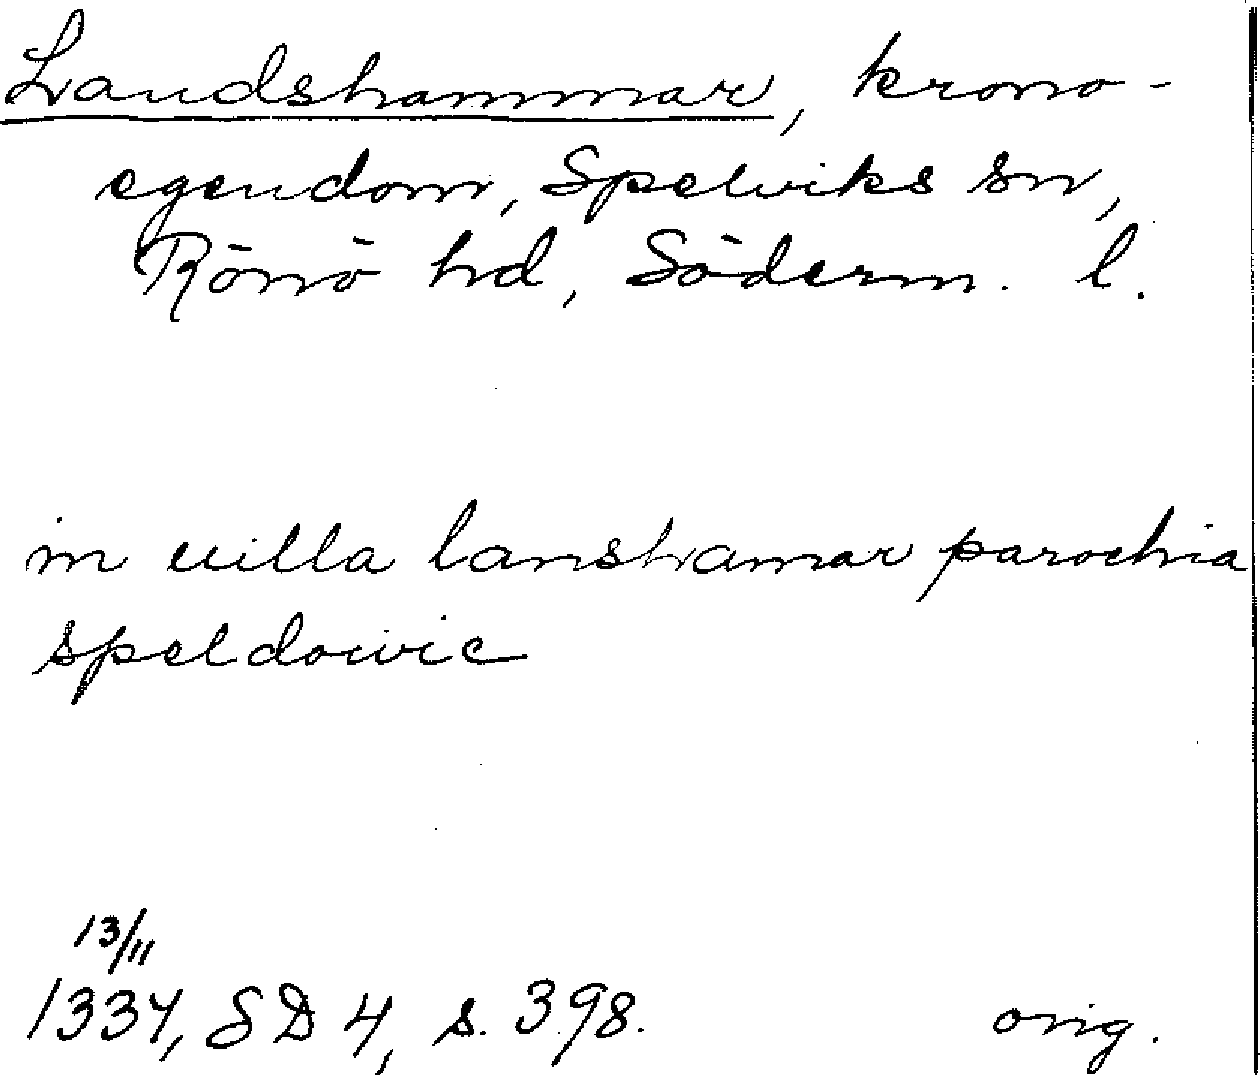 Landshammar, krono-
egendom, Spelviks sn,
Rönö hd, Söderm. l.
in uilla lanshamar parochia
speldowic
13/11
1334, SD 4, s. 398.
orig.